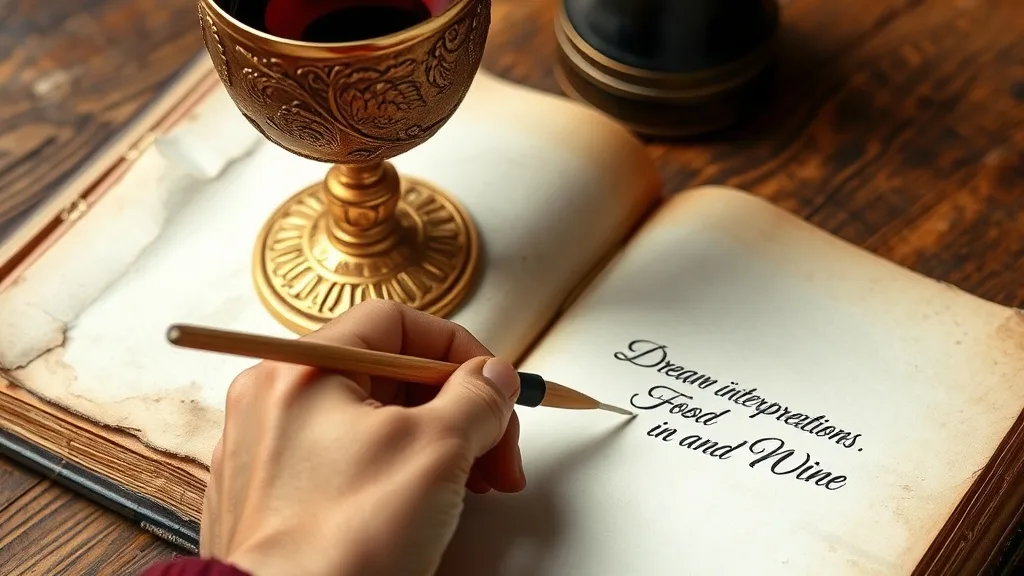 Dream interpretations.
Food
in and Wine